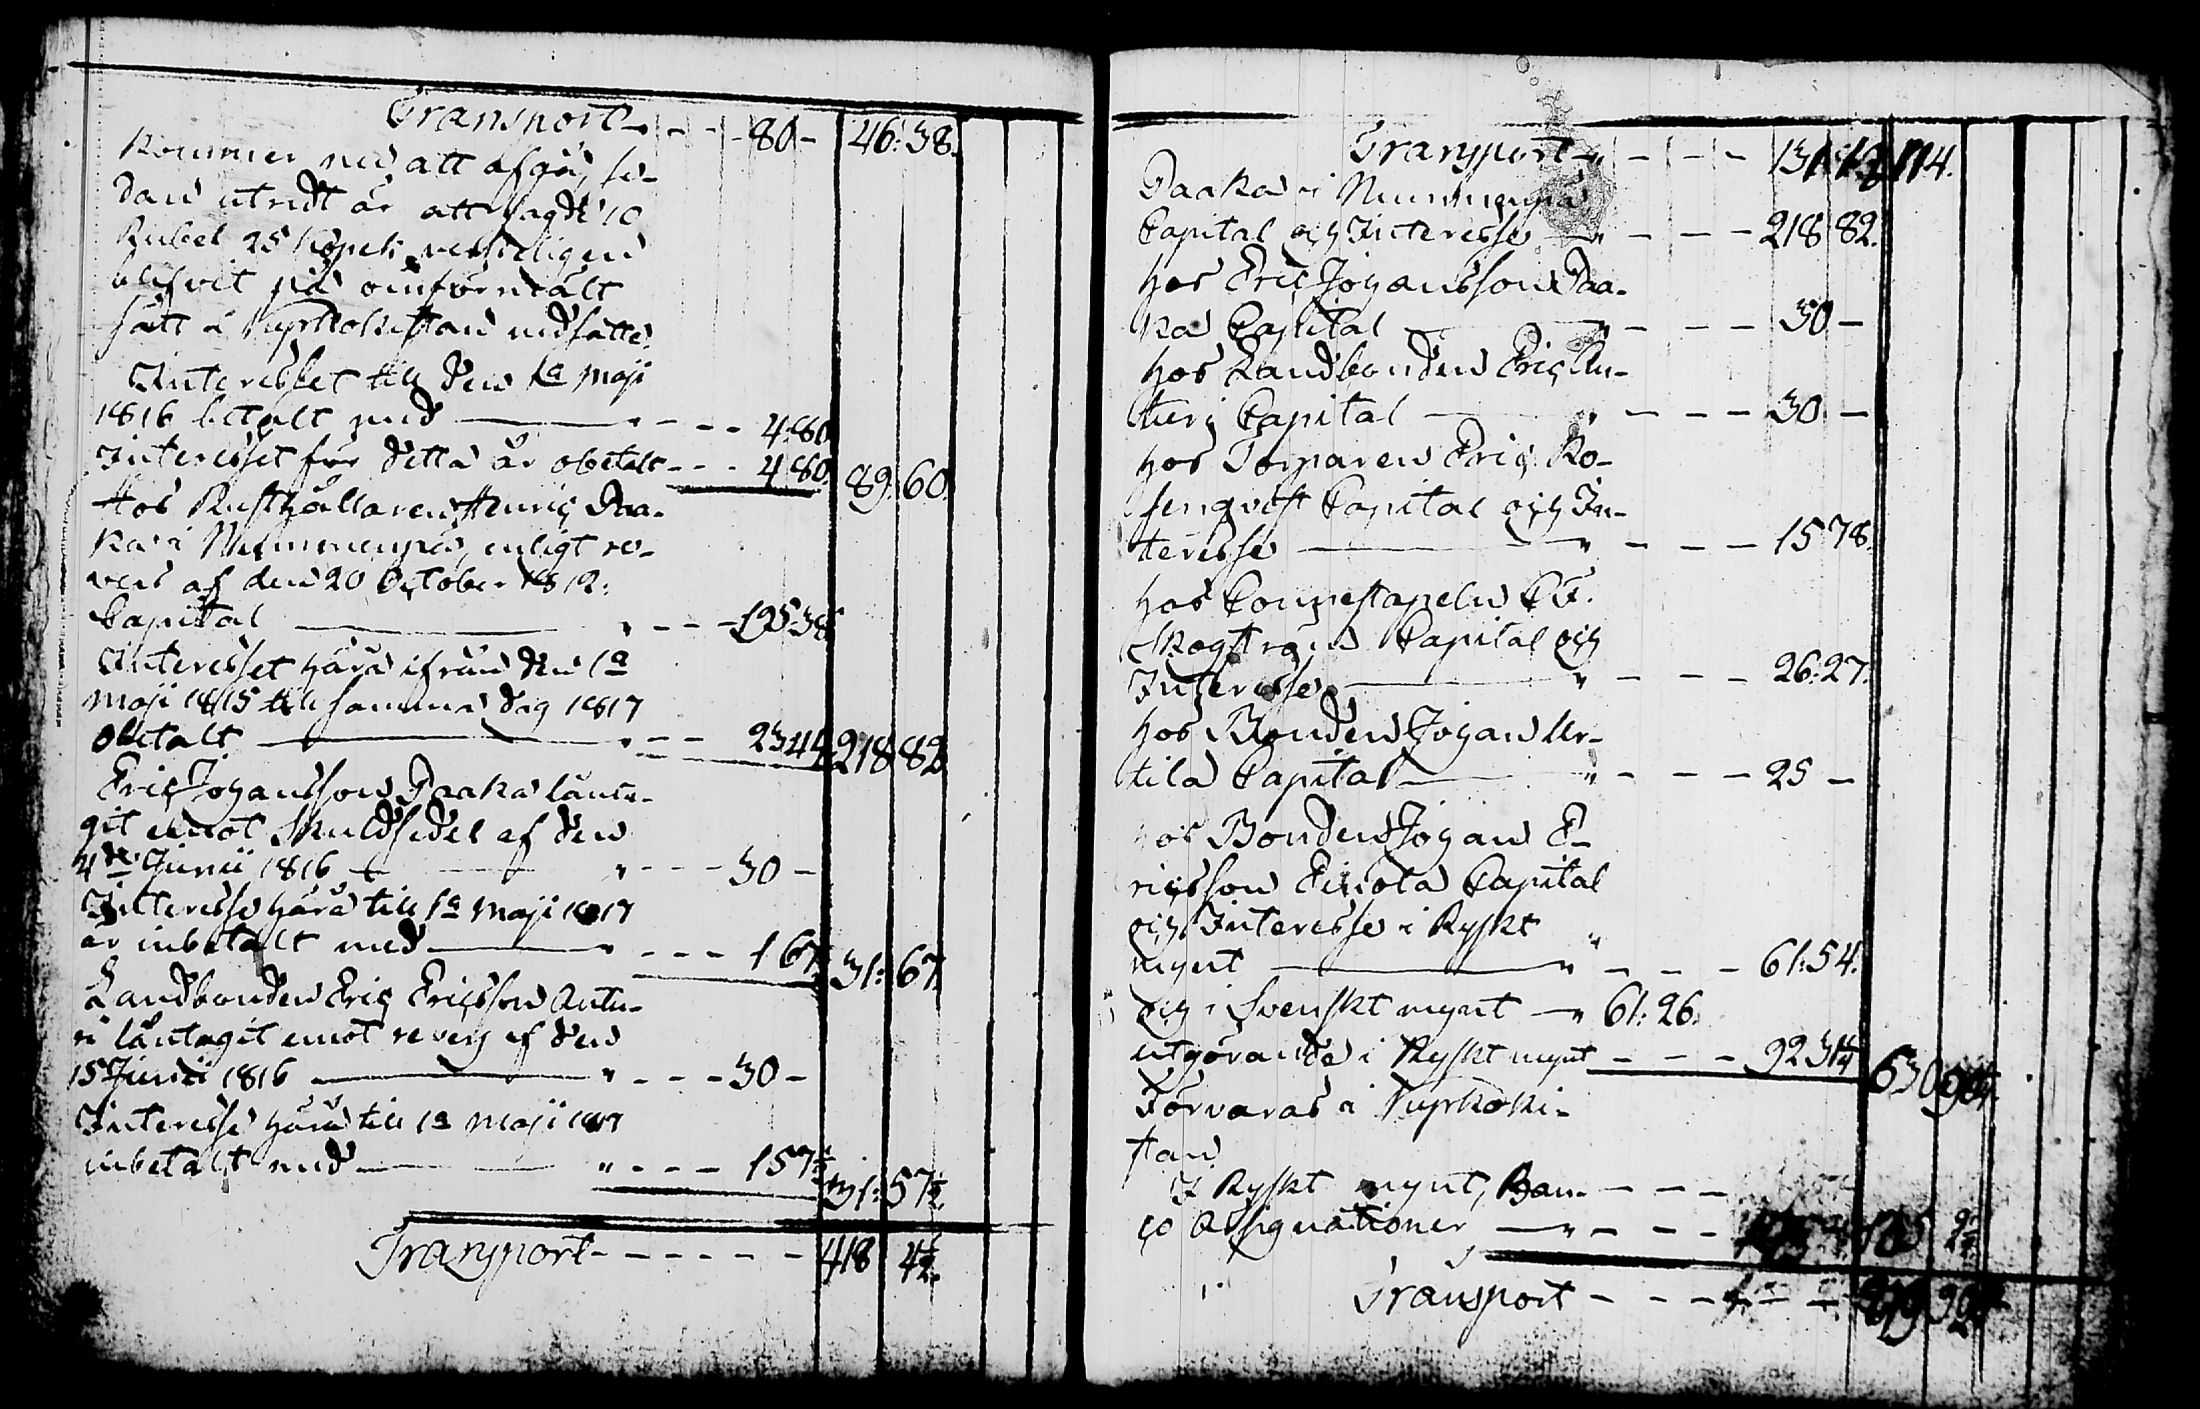 Transport - - - 80 - 46: 38.
kommer med att afgå, se-
dan utredt är att sagde 10
Rubel 25 Kopek verkeligen
blifvit på oinförmält
sätt i Kyrkokistan nedsatte.
Interesset till den 1a Maji
1816 betalt med - - - 4:80
Interesset för detta år obetalt - - - 4:80. 89: 60.
Hos Rusthållaren Henric Daa-
ka i Mummenpä, enligt re-
vers af den 20 October 1812:
Capital - - - 195:38
Interesset härå ifrån den 1a
Maji 1815 till samma dag 1817
obetalt - - - 23 44 218 82
Eric Johansson Daaka lånta-
git emot Skuldsedel af den
4de Junii 1816 - - - 30 -
Interesse härå till 1a Maji 1817
är inbetalt med - - - 1 67 31: 67
Landbonden Eric Ericsson Antu-
ri låntagit emot revers af den
15 Junii 1816 - - - 30 -
Interesse härå till 1a Maji 1817
inbetalt med - - - 1 57½ 31: 57½.
Transport - - - - - 418 4½.
Transport - - -
Daaka i Mummenpä
Capital och Interesse - - - 218 82.
hos Eric Johansson Daa-
ka Capital - - - 30 -
hos Landbonden Eric An-
turi Capital - - - 30 -
hos Torparen Eric Ro-
sengvist Capital och In-
teresse - - - 15 78.
hos Lounestapeln
Skogström Capital och
Interesse - - - 26:27.
hos Bonden Johan Ur-
tila Capital - - - 25 -
hos Bonden Johan E-
ricsson Einola Capital
och Interesse i Ryskt
mynt - - - 61:54.
och i Svenskt mynt - 61: 26.
utgörande i Ryskt mynt - - - 92 31¼ 630
Förvaras i Kyrkoki-
stan
I Ryskt mynt, Ban- - - -
co Assignationer - - -
Transport - - -